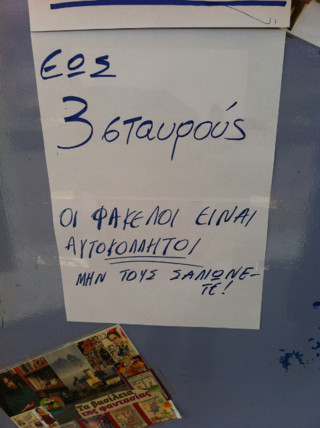 ΕΩΣ
3 σταυρούς
ΟΙ ΦΑΚΕΛΟΙ ΕΙΝΑΙ
ΑΥΤΟΚΟΛΛΗΤΟΙ
ΜΗΝ ΤΟΥΣ ΣΑΛΙΩΝΕ-
ΤΕ!
Τα βασίλεια
της φαντασίας